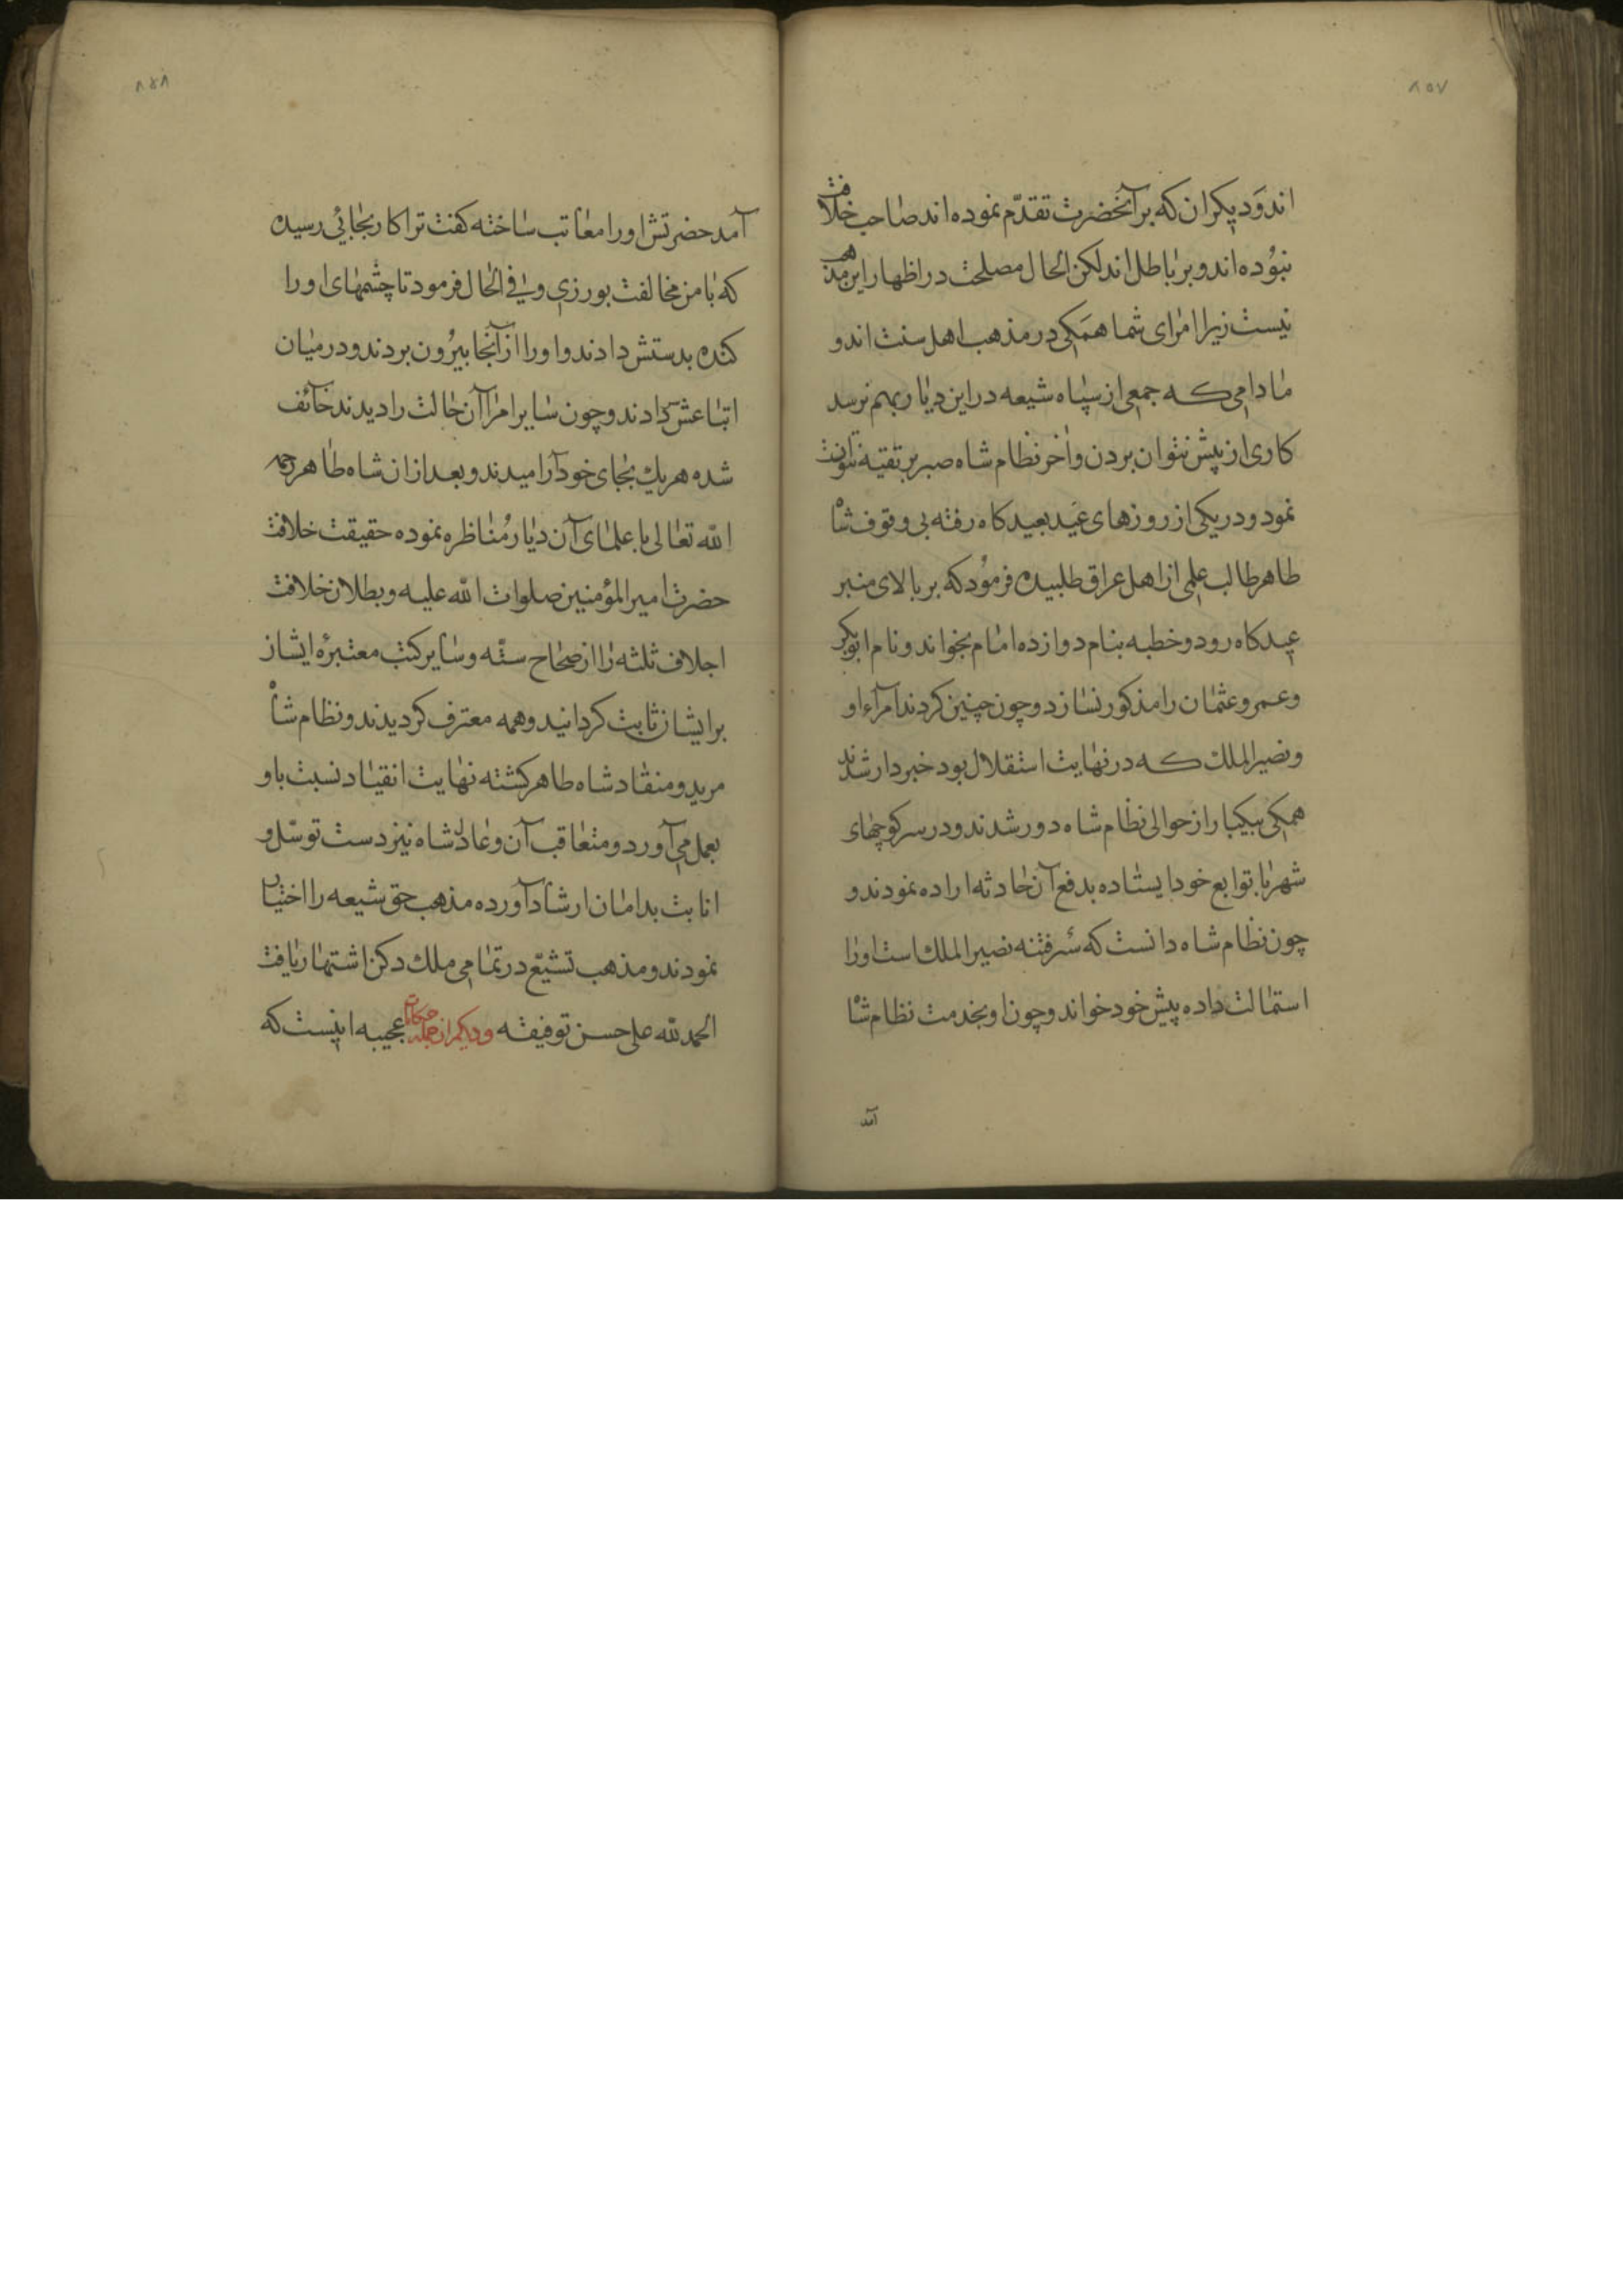 ۸۵۷
اند و دیکران که بر آنحضرت تقدّم نموده اند صاحب خلافت
نبوده اند و بر باطل اند لکن الحال مصلحت در اظهار این مذهب
نیست زیرا امرای شما همکی در مذهب اهل سنت اند و
مادامی که جمعی از سپاه شیعه در این دیار بهم نرسد
کاری از پیش نتوان بردن و آخر نظام شاه صبر بر تقیه نتوانست
نمود و در یکی از روزهای عید بعیدکاه رفته بی وقوف شاه
طاهر طالب علمی از اهل عراق طلبیده فرمود که بر بالای منبر
عیدکاه رود و خطبه بنام دوازده امام بخواند و نام ابوبکر
و عمر و عثمان را مذکور نسازد و چون چنین کردند امرآء او
و نصیر الملک که در نهایت استقلال بود خبردار شدند
همکی بیکبار از حوالی نظام شاه دور شدند و در سر کوچهای
شهر با توابع خود ایستاده بدفع آن حادثه اراده نمودند و
چون نظام شاه دانست که سر فتنه نصیر الملک است او را
استمالت داده پیش خود خواند و چون او بخدمت نظام شاه
آمد
۸۵۸
آمد حضرتش او را معاتب ساخته کفت ترا کار بجائی رسیده
که با من مخالفت بورزی و فی الحال فرمود تا چشمهای او را
کنده بدستش دادند و او را از آنجا بیرون بردند و در میان
اتباعش سر دادند و چون سایر امرا آن حالت را دیدند خائف
شده هر یک بجای خود آرامیدند و بعد از ان شاه طاهر رحمه
الله تعالی با علمای آن دیار مناظره نموده حقیقت خلافت
حضرت امیر المؤمنین صلوات الله علیه و بطلان خلافت
اجلاف ثلثه را از صحاح ستّه و سایر کتب معتبرۀ ایشان
بر ایشان ثابت کردانید و همه معترف کردیدند و نظام شاه
مرید و منقاد شاه طاهر کشته نهایت انقیاد نسبت باو
بعمل می آورد و متعاقب آن و عادل شاه نیز دست توسّل و
انابت بدامان ارشاد آورده مذهب حق شیعه را اختیار
نمودند و مذهب تشیّع در تمامی ملک دکن اشتهار یافت
الحمد لله علی حسن توفیقه و دیکر از جمله حکایات عجیبه اینست که